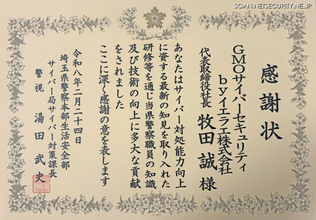 SCAN.NETSECURITY.NE.JP
感謝状
GMOサイバーセキュリティ
byイエラエ株式会社
代表取締役社長 牧田 誠 様
あなたはサイバー対処能力向上
に資する最新の知見を取り入れた
研修等を通じ当県警察職員の知識
及び技術の向上に多大な貢献
をされました
ここに深く感謝の意を表します
令和八年二月二十四日
埼玉県警察本部生活安全部
サイバー局サイバー対策課長
警視 湯田 武史